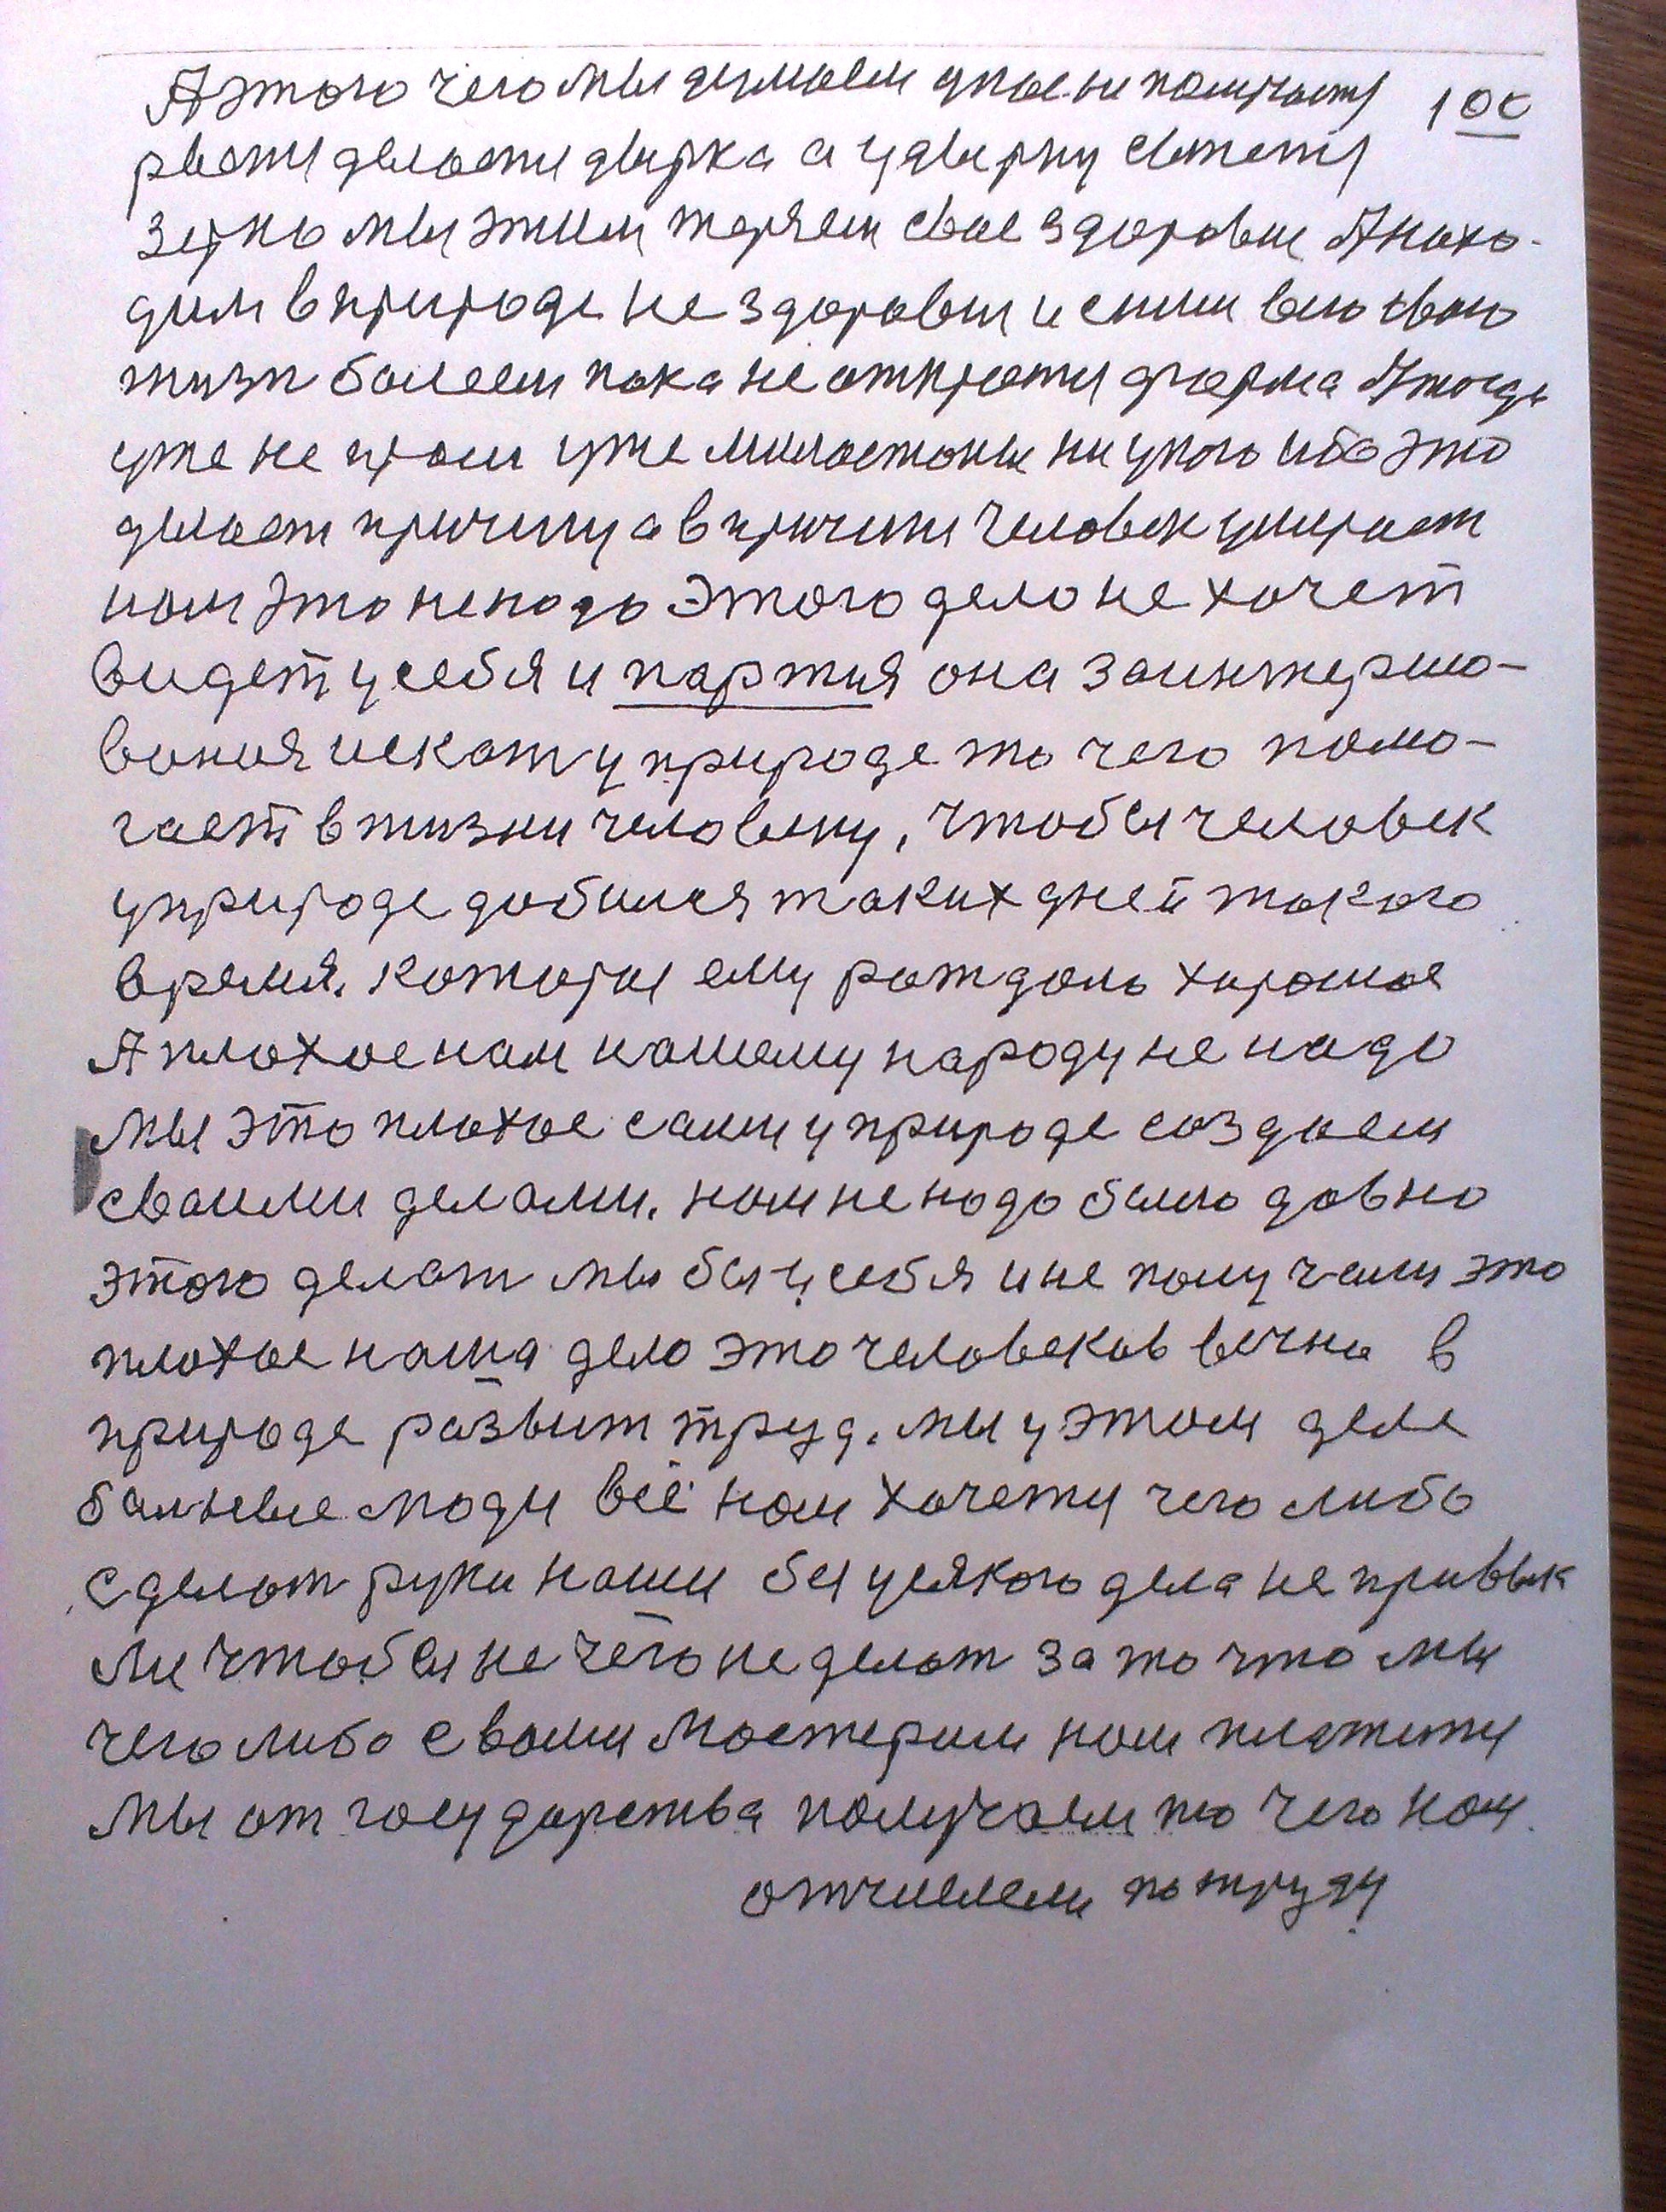 А этого чего мы думаем у нас не получается 100
рвется делается дырка а у дырку сыпется
зерно мы этим теряем свое здоровие А нахо-
дим в природе не здоровия и с ним всю свою
жизн болеем пока не откроется форма А тогда
уже не проси уже милостоны ни у кого ибо это
делает причину а в причини человек умирает
нам это не надо Этого дело не хочет
видет у себя и партия она заинтерисо-
вания искат у природе то чего помо-
гает в жизни человеку, чтобы человек
у природе добился таких дней такого
время. которые ему рождало хорошое
А плохое нам нашему народу не надо
мы это плохое сами у природе создаем
своими делами. нам не надо было давно
этого делат мы бы у себя и не получали это
плохое наша дело это человеков вечна в
природе развит труд. мы у этом деле
больные люди всё нам хочется чего либо
сделат руки наши бы усякого дела не привык
ли чтобы не чего не делат за то что мы
чего либо с вами мастерим нам платится
мы от государства получаем то чего нам
отчисляем по труду